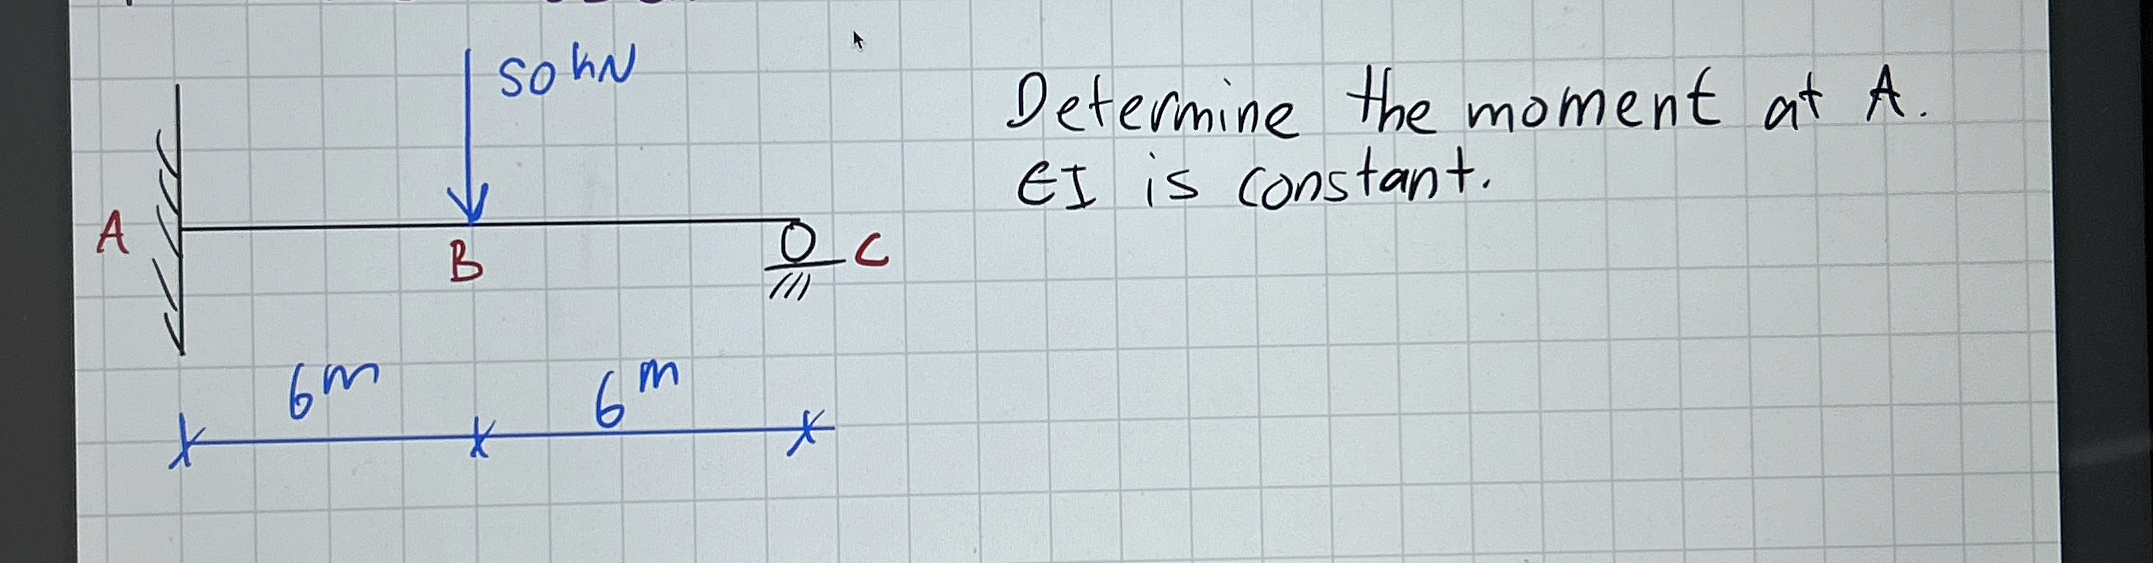 50 kN
Determine the moment at A.
EI is constant.
A
B
C
6 m
6 m